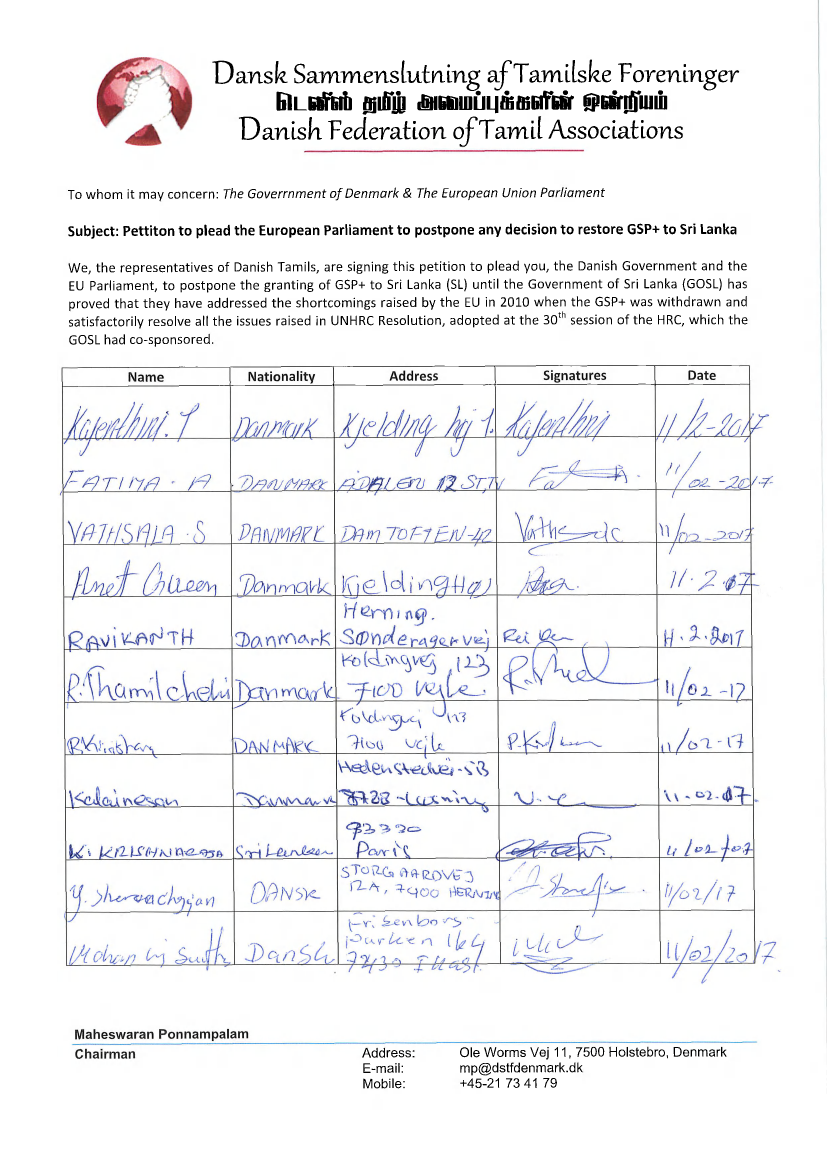 Dansk Sammenslutning af Tamilske Foreninger
டெனிஸ் தமிழ் அமைப்புக்களின் ஒன்றியம்
Danish Federation of Tamil Associations
To whom it may concern: The Goverrnment of Denmark & The European Union Parliament
Subject: Pettiton to plead the European Parliament to postpone any decision to restore GSP+ to Sri Lanka
We, the representatives of Danish Tamils, are signing this petition to plead you, the Danish Government and the
EU Parliament, to postpone the granting of GSP+ to Sri Lanka (SL) until the Government of Sri Lanka (GOSL) has
proved that they have addressed the shortcomings raised by the EU in 2010 when the GSP+ was withdrawn and
satisfactorily resolve all the issues raised in UNHRC Resolution, adopted at the 30th session of the HRC, which the
GOSL had co-sponsored.
Name Nationality Address Signatures Date
Kajenthini. T Danmark Kjelding høj 1. Kajenthini 11/2-2017
FATIMA - A DANMARK ÅDALEN 12 ST,TV 11/02-2017
VATHSALA.S DANMARK DAMTOFTEN-42 11/02-2017
Danmark Kjelding Høj 11.2.17
Herning.
RAVIKANTH Danmark Sønderagervej 11.2.2017
Koldingvej, 123
R.Thamilchelvi Danmark 7100 Vejle. 11/02-17
Koldingvej 123
DANMARK 7100 Vejle 11/02-17
Kalainesan Danmark 11.02.17.
93320
K. KRISHNARAJA SriLankan Paris 11/02/07
STORGAARDVEJ
DANSK 12A, 7400 HERNING 11/02/17
Frisenborg-
Dansk parken 7430 Ikast 11/02/2017
Maheswaran Ponnampalam
Chairman
Address: Ole Worms Vej 11, 7500 Holstebro, Denmark
E-mail: mp@dstfdenmark.dk
Mobile: +45-21 73 41 79